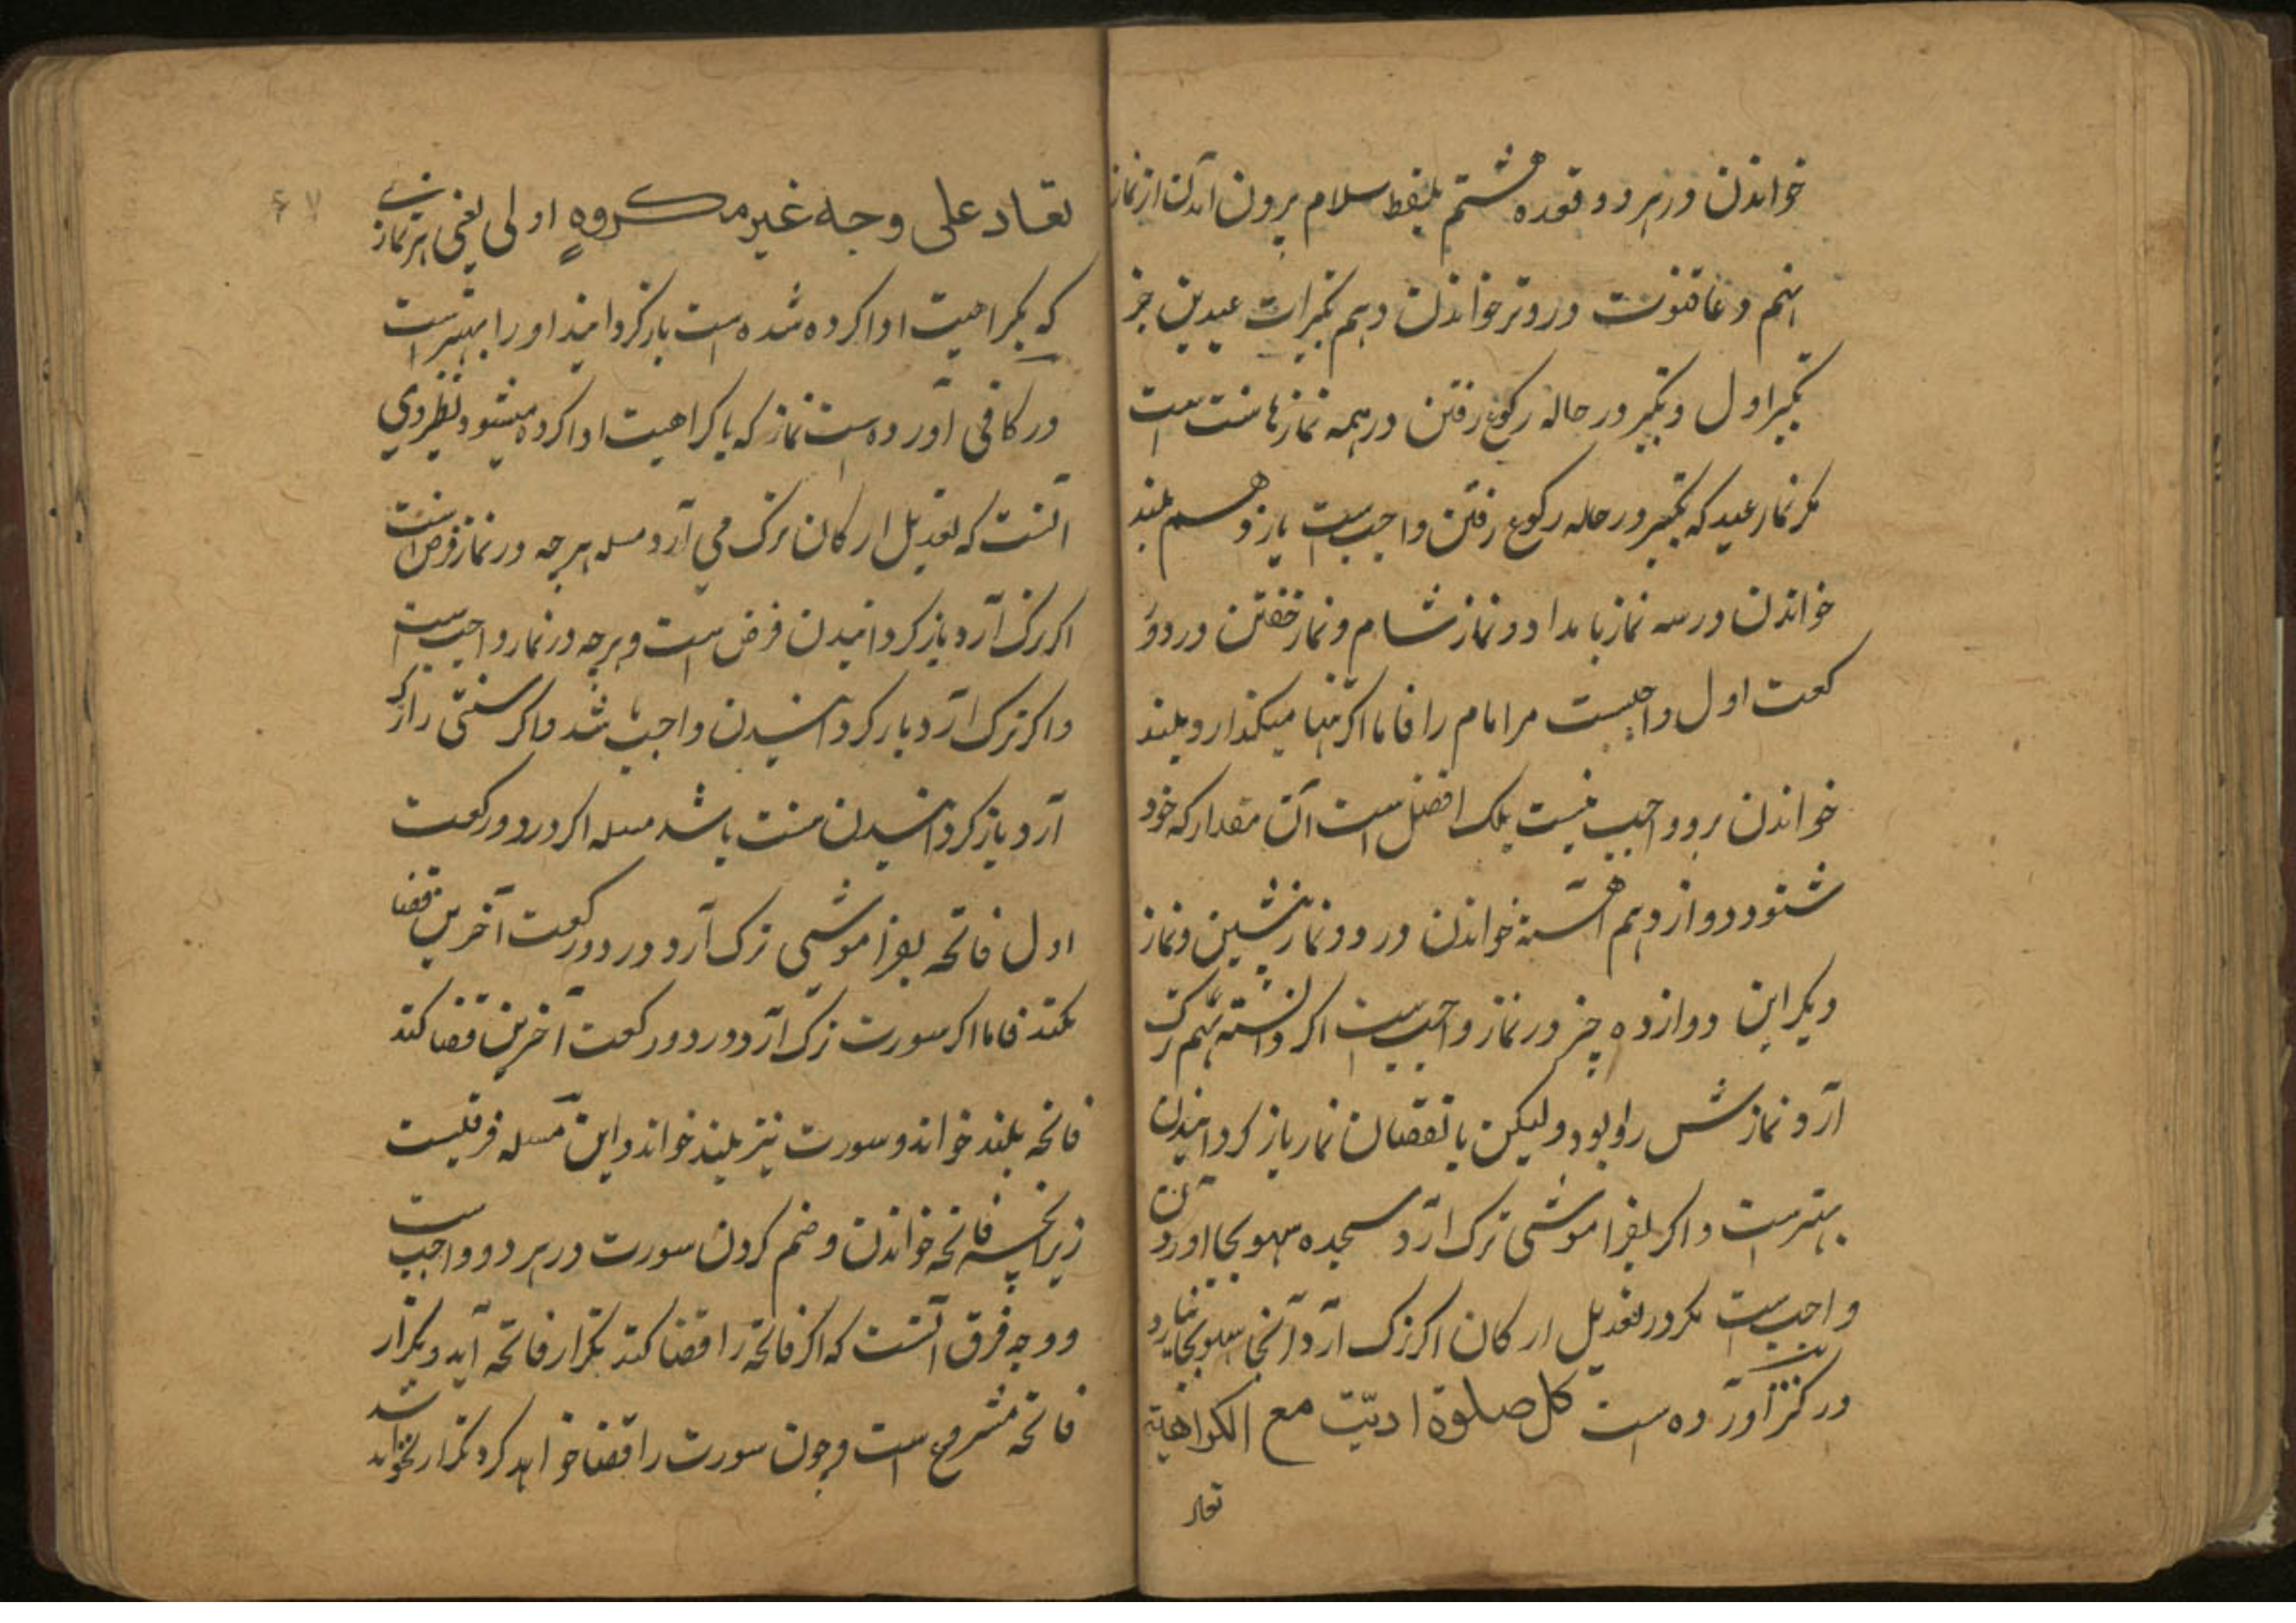 خواندن در هر دو قعده هشتم بلفظ سلام برون آمدن از نماز
نهم دعا قنوت در وتر خواندن دهم تکبیرات عیدین جز
تکبیر اول و تکبیر در حاله رکوع رفتن در همه نمازها سنت است
مکر نماز عید که تکبیر در حاله رکوع رفتن واجب است یازدهم بلند
خواندن در سه نماز بامداد و نماز شام و نماز خفتن در دو ر
کعت اول واجبست مر امام را فاما اکر تنها میکذارد بلند
خواندن برو واجب نیست بلک افضل است آن مقدار که خود
شنود دوازدهم آهسته خواندن در دو نماز پشین و نماز
دیکر این دوازده چیز در نماز واجب است اکر دانسته هم ترک
آرد نمازش روا بود ولیکن با نقصان نماز باز کردانیدن
بهتر است و اکر بفراموشی ترک آرد سجده سهو بجا آوردن
واجب است مکر در تعدیل ارکان اکر ترک آرد آنجا سهو بجا نیارد
در کنز آورده است کل صلوة ادیّت مع الکراهیة
تعاد
تعاد علی وجه غیر مکروهٍ اولی یعنی هر نمازی
که بکراهیت ادا کرده شده است باز کردانید او را بهتر است
در کافی آورده است نماز که با کراهیت ادا کرده میشود نظر وی
آنست که تعدیل ارکان ترک می آرد مسله هرچه در نماز فرض است
اکر ترک آرد باز کردانیدن فرض است و هرچه در نماز واجب است
و اکر ترک آرد باز کردانیدن واجب شد و اکر سنتی را ترک
آرد باز کردانیدن سنت باشد مسله اکر در دو رکعت
اول فاتحه بفراموشی ترک آرد در دو رکعت آخرین قضا
نکند فاما اکر سورت ترک آرد در دو رکعت آخرین قضا کند
فاتحه بلند خواند و سورت نیز بلند خواند و این مسله فرقیست
زیرانچه فاتحه خواندن و ضم کردن سورت در هر دو واجب است
و وجه فرق آنست که اکر فاتحه را قضا کند تکرار فاتحه آید و تکرار
فاتحه مشروع است و چون سورت را قضا خواهد کرد تکرار نخواهد شد